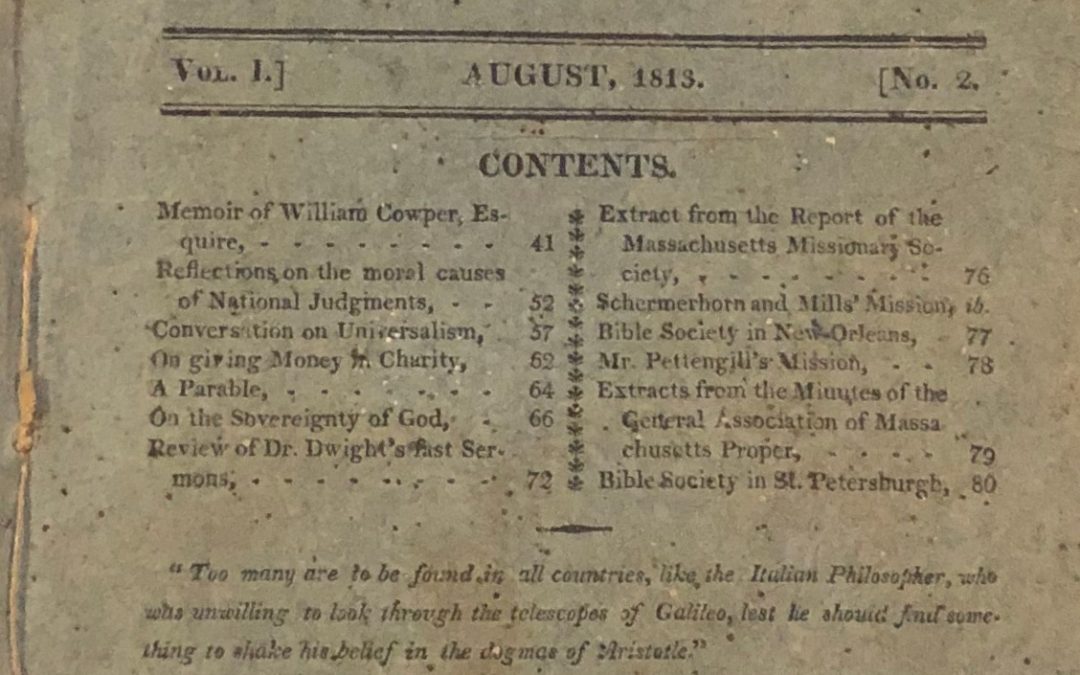 VOL. I.] AUGUST, 1813. [No. 2.
CONTENTS.
Memoir of William Cowper, Es-
quire, - - - - - - - - 41
Reflections on the moral causes
of National Judgments, - - 52
Conversation on Universalism, 57
On giving Money in Charity, 62
A Parable, - - - - - - - 64
On the Sovereignty of God, - - 66
Review of Dr. Dwight's fast Ser-
mons, - - - - - - - - 72
Extract from the Report of the
Massachusetts Missionary So-
ciety, - - - - - - - - 76
Schermerhorn and Mills' Mission, ib.
Bible Society in New-Orleans, 77
Mr. Pettengill's Mission, - - 78
Extracts from the Minutes of the
General Association of Massa
chusetts Proper, - - - - 79
Bible Society in St. Petersburgh, 80
"Too many are to be found in all countries, like the Italian Philosopher, who
was unwilling to look through the telescopes of Galileo, lest he should find some-
thing to shake his belief in the dogmas of Aristotle."